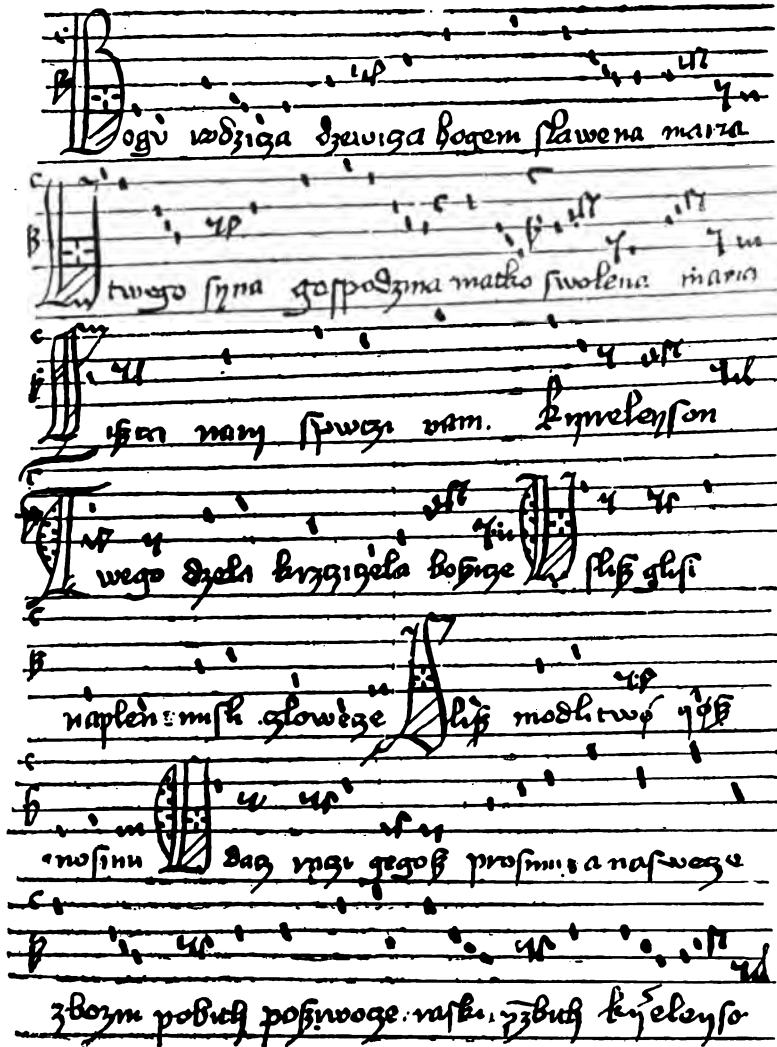 Bogu rodzicza dzewicza bogem slawena maria
U twego syna gospodzina matko swolena maria
Siszczi nam spwczi nam. kyrieleyson
Twego dzela krzcziczela bozicze Uslisz glosi
naplen misli człowecze Slisz modlitwø yøsz
nosimi A dacz raczi gegosz prosimi a naswecze
zbozni pobith poszywocze raski przebith kyrieleyso